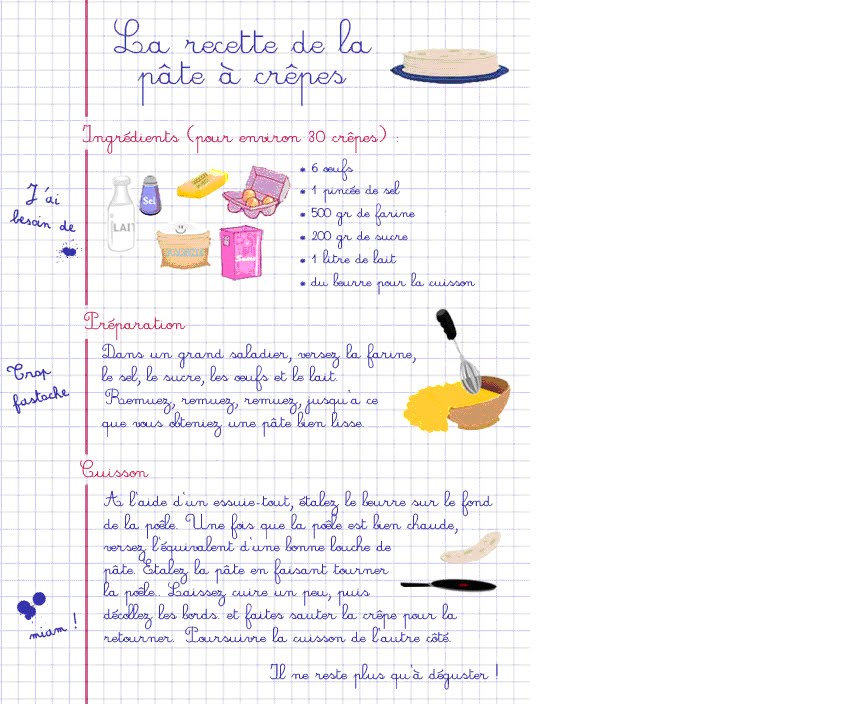 La recette de la
pâte à crêpes
Ingrédients (pour environ 30 crêpes) :
J'ai
besoin de
LAIT
Sel
Sucre
• 6 œufs
• 1 pincée de sel
• 500 gr de farine
• 200 gr de sucre
• 1 litre de lait
• du beurre pour la cuisson
Préparation
Trop
fastoche
Dans un grand saladier, versez la farine,
le sel, le sucre, les œufs et le lait.
Remuez, remuez, remuez, jusqu'a ce
que vous obteniez une pâte bien lisse.
Cuisson
A l'aide d'un essuie-tout, étalez le beurre sur le fond
de la poêle. Une fois que la poêle est bien chaude,
versez l'équivalent d'une bonne louche de
pâte. Etalez la pâte en faisant tourner
la poêle.. Laissez cuire un peu, puis
décollez les bords. et faites sauter la crêpe pour la
retourner. Poursuivre la cuisson de l'autre côté.
miam !
Il ne reste plus qu'à déguster !